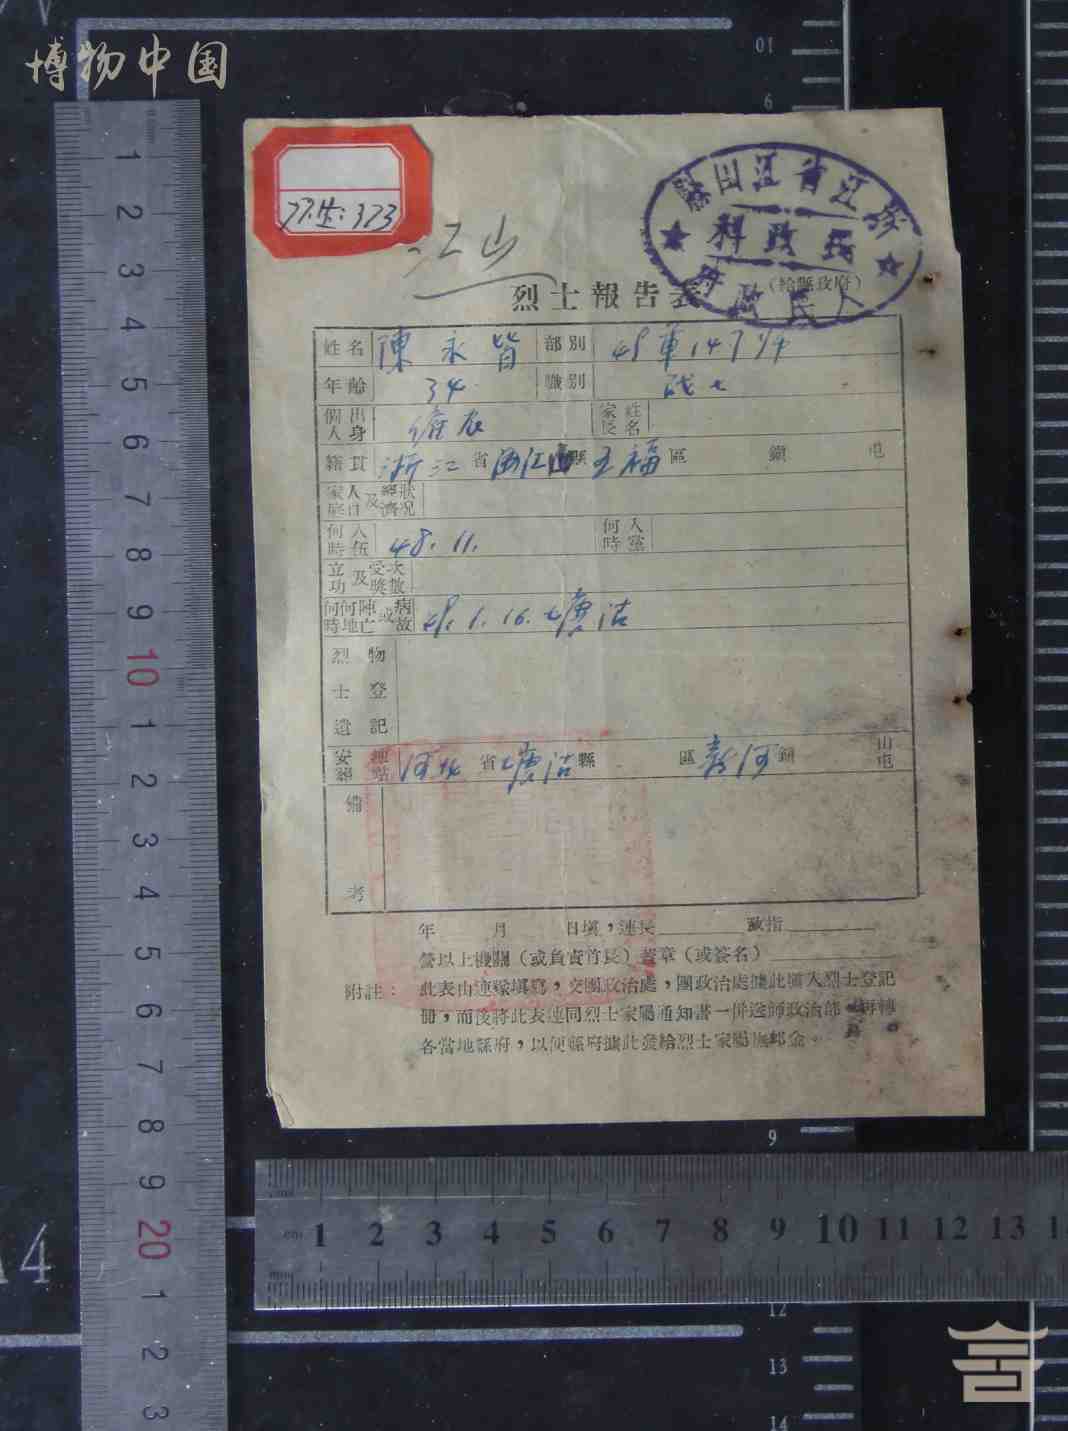 博物中国
77.生:373
江山
浙江省江山縣
民政科
人民政府
烈士報告表
(給縣政府)
姓名 陳永皆 部別 48軍147师
年齡 34 職別 战士
個人出身 雇农 家長姓名
籍貫 浙江省 江山縣 王福區 鎮 屯
家庭人口及經濟狀况
何時入伍 48.11. 何時入黨
立功及受獎次數
何時何地陣亡或病故 49.1.16.塘沽
烈士遺物登記
安葬地點 河北省塘沽縣 區新河鎮 山屯
備考
年 月 日填,連長 政指
營以上機關(或負責首長)蓋章(或簽名)
附註: 此表由連隊填寫,交團政治處,團政治處據此填入烈士登記
冊,而後將此表連同烈士家屬通知書一併送師政治部 再轉
各當地縣府,以便縣府據此發給烈士家屬撫卹金。